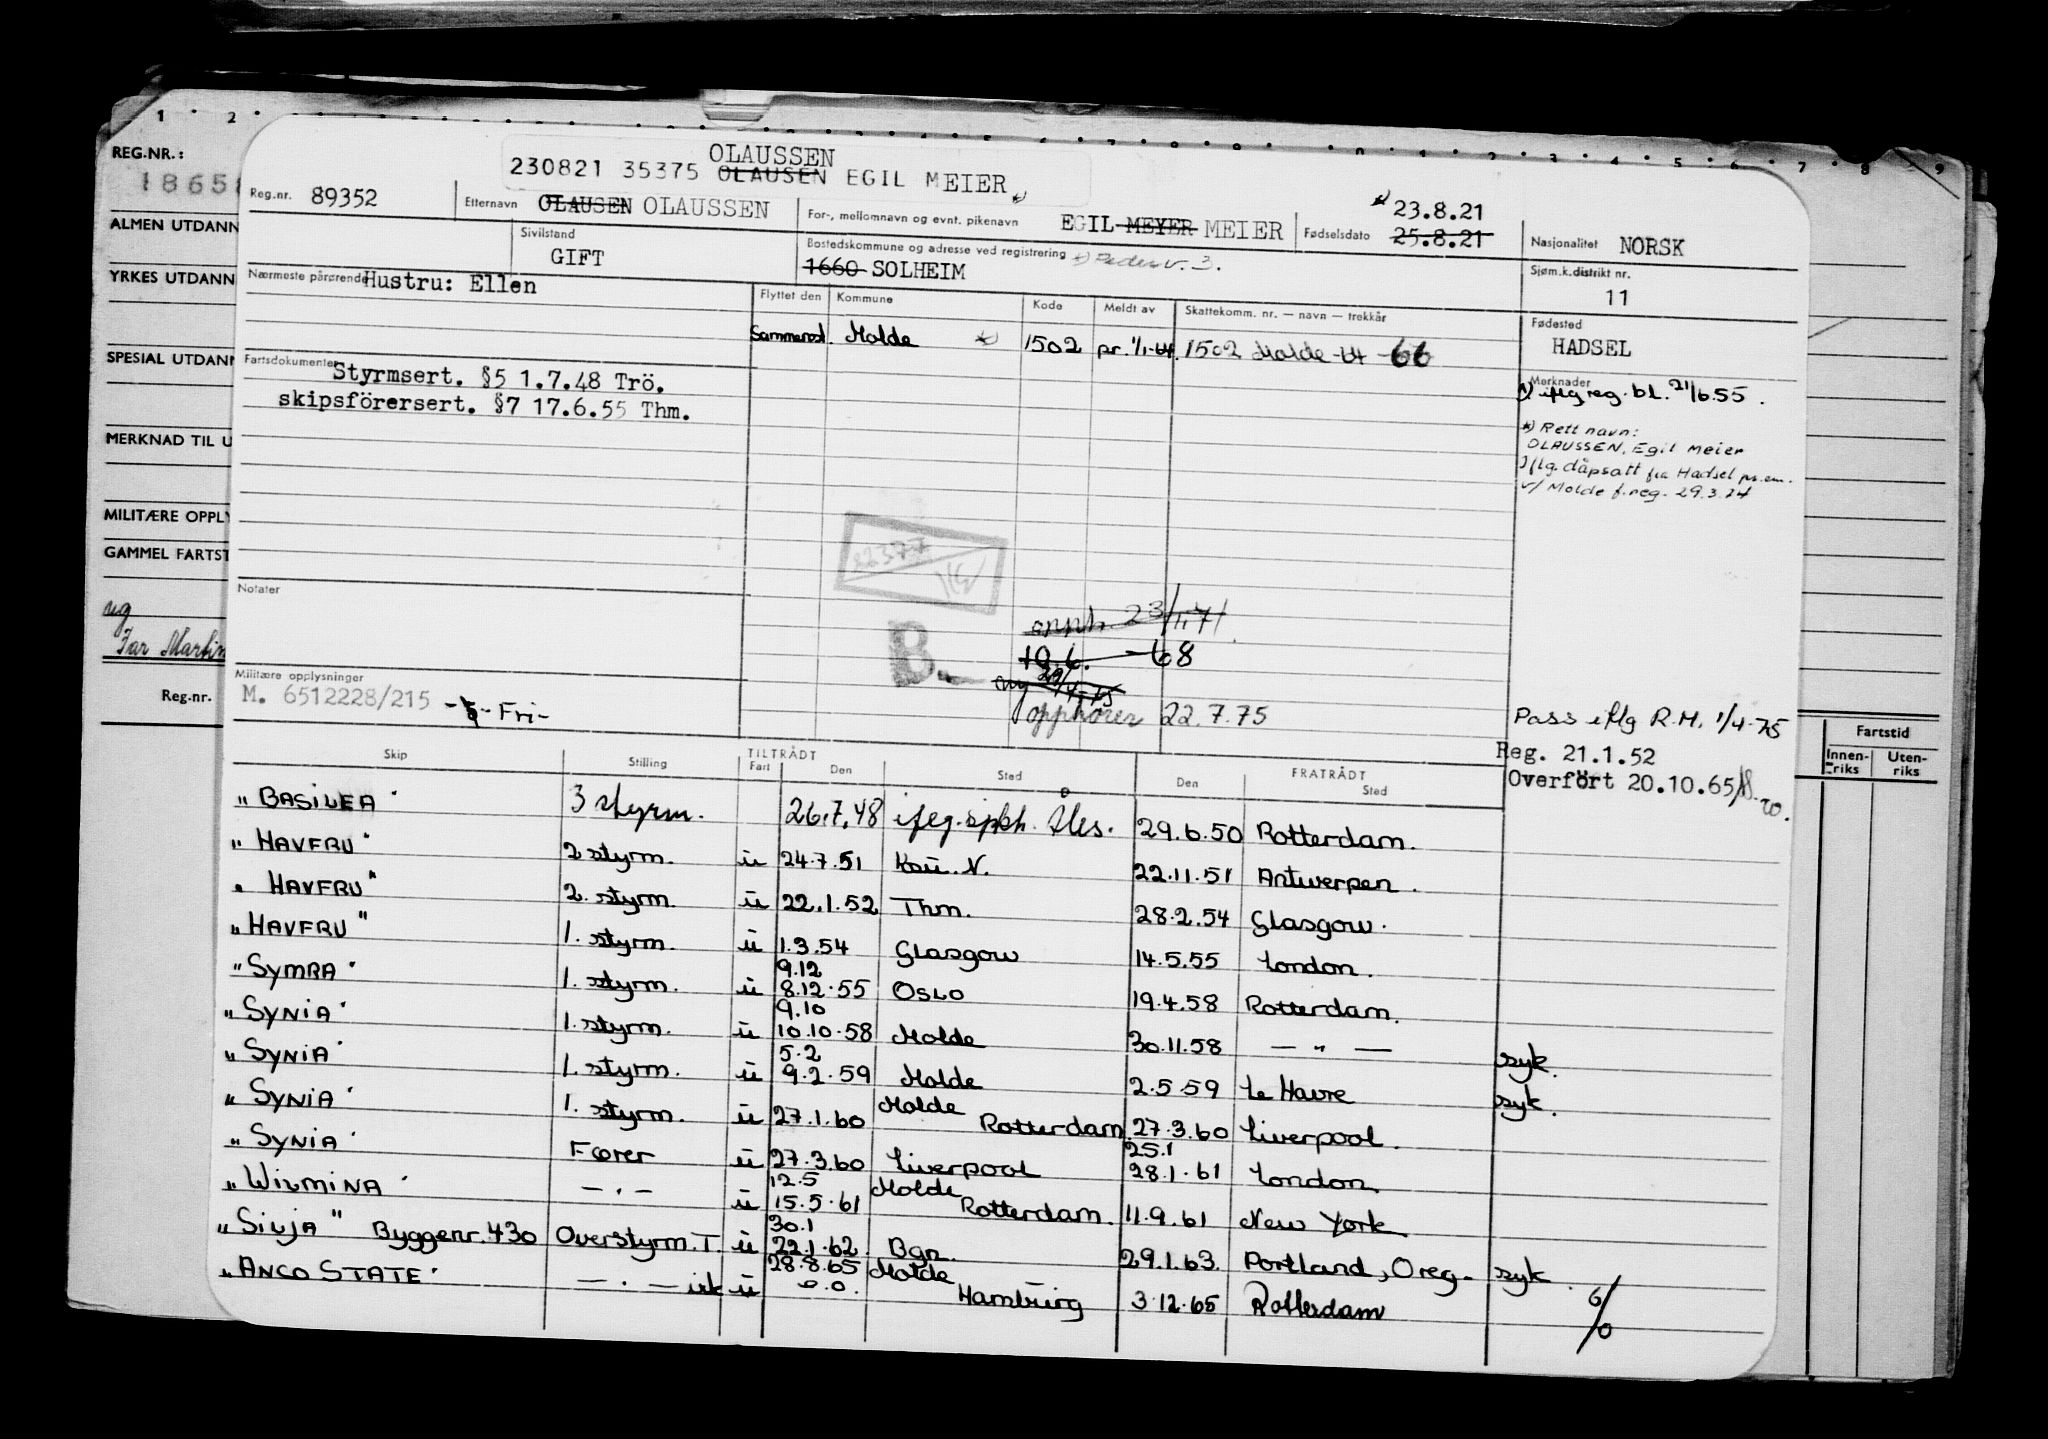 1 2 3 4 5 6 7 8 9
REG.NR.:
1865
ALMEN UTDANN
YRKES UTDANN
SPESIAL UTDANN
MERKNAD TIL U
MILITÆRE OPPLY
GAMMEL FARTST
ug
Far Martin
Reg.nr.
Fartstid
Innen-riks Uten-riks
OLAUSSEN
230821 35375 OLAUSEN EGIL MEIER
Reg.nr. 89352 Etternavn OLAUSEN OLAUSSEN For-, mellomnavn og evnt. pikenavn EGIL MEYER MEIER Fødselsdato 23.8.21 25.8.21 Nasjonalitet NORSK
Sivilstand GIFT Bostedskommune og adresse ved registrering 1660 SOLHEIM Pedersv. 3. Sjøm.k.distrikt nr. 11
Nærmeste pårørende Hustru: Ellen
Flyttet den Kommune Kode Meldt av Skattekomm. nr. — navn — trekkår
Sammenst. Molde 1502 pr. 1/1-64. 1502 Molde -64 -66
Fødested
HADSEL
Fartsdokumenter Styrmsert. §5 1.7.48 Trö.
skipsförersert. §7 17.6.55 Thm.
Merknader
iflg reg. bl. 21/6.55.
*) Rett navn:
OLAUSSEN, Egil Meier
Iflg. dåpsatt fra Hadsel pr.em.
v/ Molde f.reg. 29.3.74
Notater
82377
B.
opph. 23/11.71.
19.6. -68
ny 29/4-75
opphører 22.7.75
Militære opplysninger
M. 6512228/215 -5- Fri-
Pass iflg R.M. 1/4-75
Reg. 21.1.52
Overfört 20.10.65
Skip Stilling TILTRÅDT FRATRÅDT
Fart Den Sted Den Sted
"BASILEA" 3 styrm. 26.7.48 ifeg. sjkh. Åles. 29.6.50 Rotterdam.
"HAVFRU" 2 styrm. u 24.7.51 Kau. N. 22.11.51 Antwerpen.
"HAVFRU" 2. styrm. u 22.1.52 Thm. 28.2.54 Glasgow.
"HAVFRU" 1. styrm. u 1.3.54 Glasgow 14.5.55 London.
"SYMRA" 1. styrm. u 9.12 8.12.55 OSLO 19.4.58 Rotterdam.
"SYNIA" 1. styrm. u 9.10 10.10.58 Molde 30.11.58 — " — syk.
"SYNIA" 1. styrm. u 5.2 9.2.59 Molde 2.5.59 Le Havre syk.
"SYNIA" 1. styrm. u 27.1.60 Molde Rotterdam 27.3.60 Liverpool.
"SYNIA" Fører u 27.3.60 Liverpool 25.1 28.1.61 London.
"WILMINA" — " — u 12.5 15.5.61 Molde Rotterdam. 11.9.61 New York
"SILJA" Byggenr. 430 Overstyrm. I. u 30.1 22.1.62. Bgn. 29.1.63. Portland, Oreg. syk.
"ANCO STATE" — " — isk u 28.8.65 o.o. Molde Hamburg 3.12.65 Rotterdam 6/0